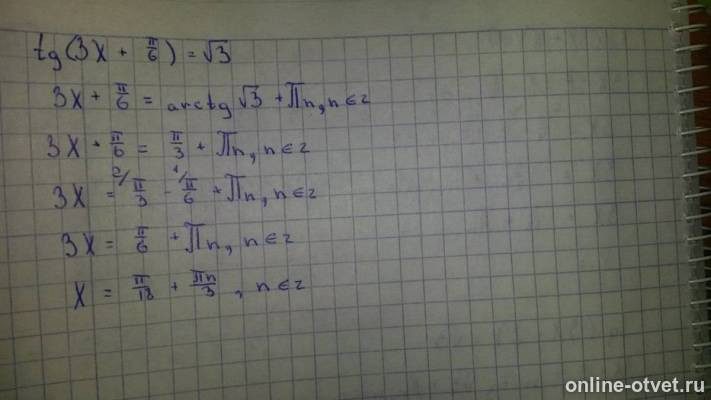 tg(3x + π/6) = √3
3x + π/6 = arctg √3 + πn, n ∈ z
3x + π/6 = π/3 + πn, n ∈ z
3x = 2/ π/3 - 1/ π/6 + πn, n ∈ z
3x = π/6 + πn, n ∈ z
x = π/18 + πn/3, n ∈ z
online-otvet.ru